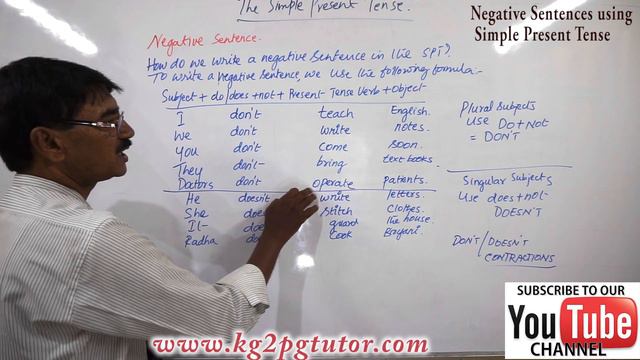 The Simple Present Tense.
Negative Sentences using
Simple Present Tense
Negative Sentence.
How do we write a negative sentence in the SPT?
To write a negative sentence, we use the following formula:-
Subject + do/does + not + Present Tense Verb + Object
I don't teach English.
We don't write notes.
You don't come soon.
They don't bring text books.
Doctors don't operate patients.
He doesn't write letters.
She stitch clothes.
It guard the house.
Radha cook Biryani.
Plural Subjects
Use Do + Not
= DON'T
Singular Subjects
Use does + not
DOESN'T
DON'T/DOESN'T
CONTRACTIONS
SUBSCRIBE TO OUR
YouTube
CHANNEL
www.kg2pgtutor.com